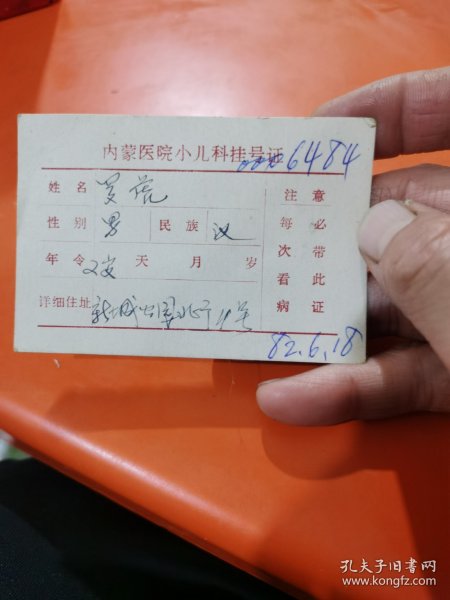 内蒙医院小儿科挂号证 6484
姓名
性别 男 民族 汉
年令 2岁 天 月 岁
详细住址 新城公园北 号
注意
每次看病
必带此证
82.6.18
孔夫子旧书网
www.kongfz.com